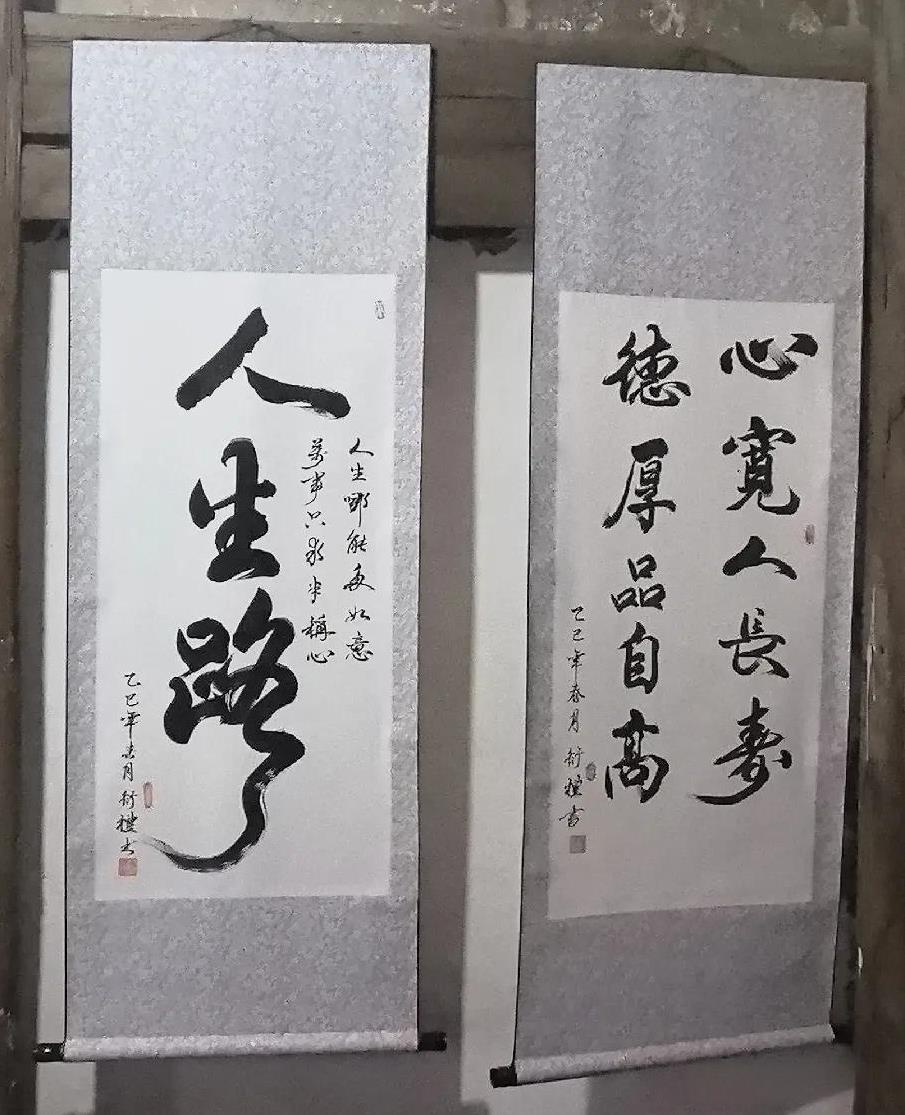 人生路
人生哪能多如意
萬事只求半稱心
乙巳年春月衍禮書
心寬人長壽
德厚品自高
乙巳年春月衍禮書